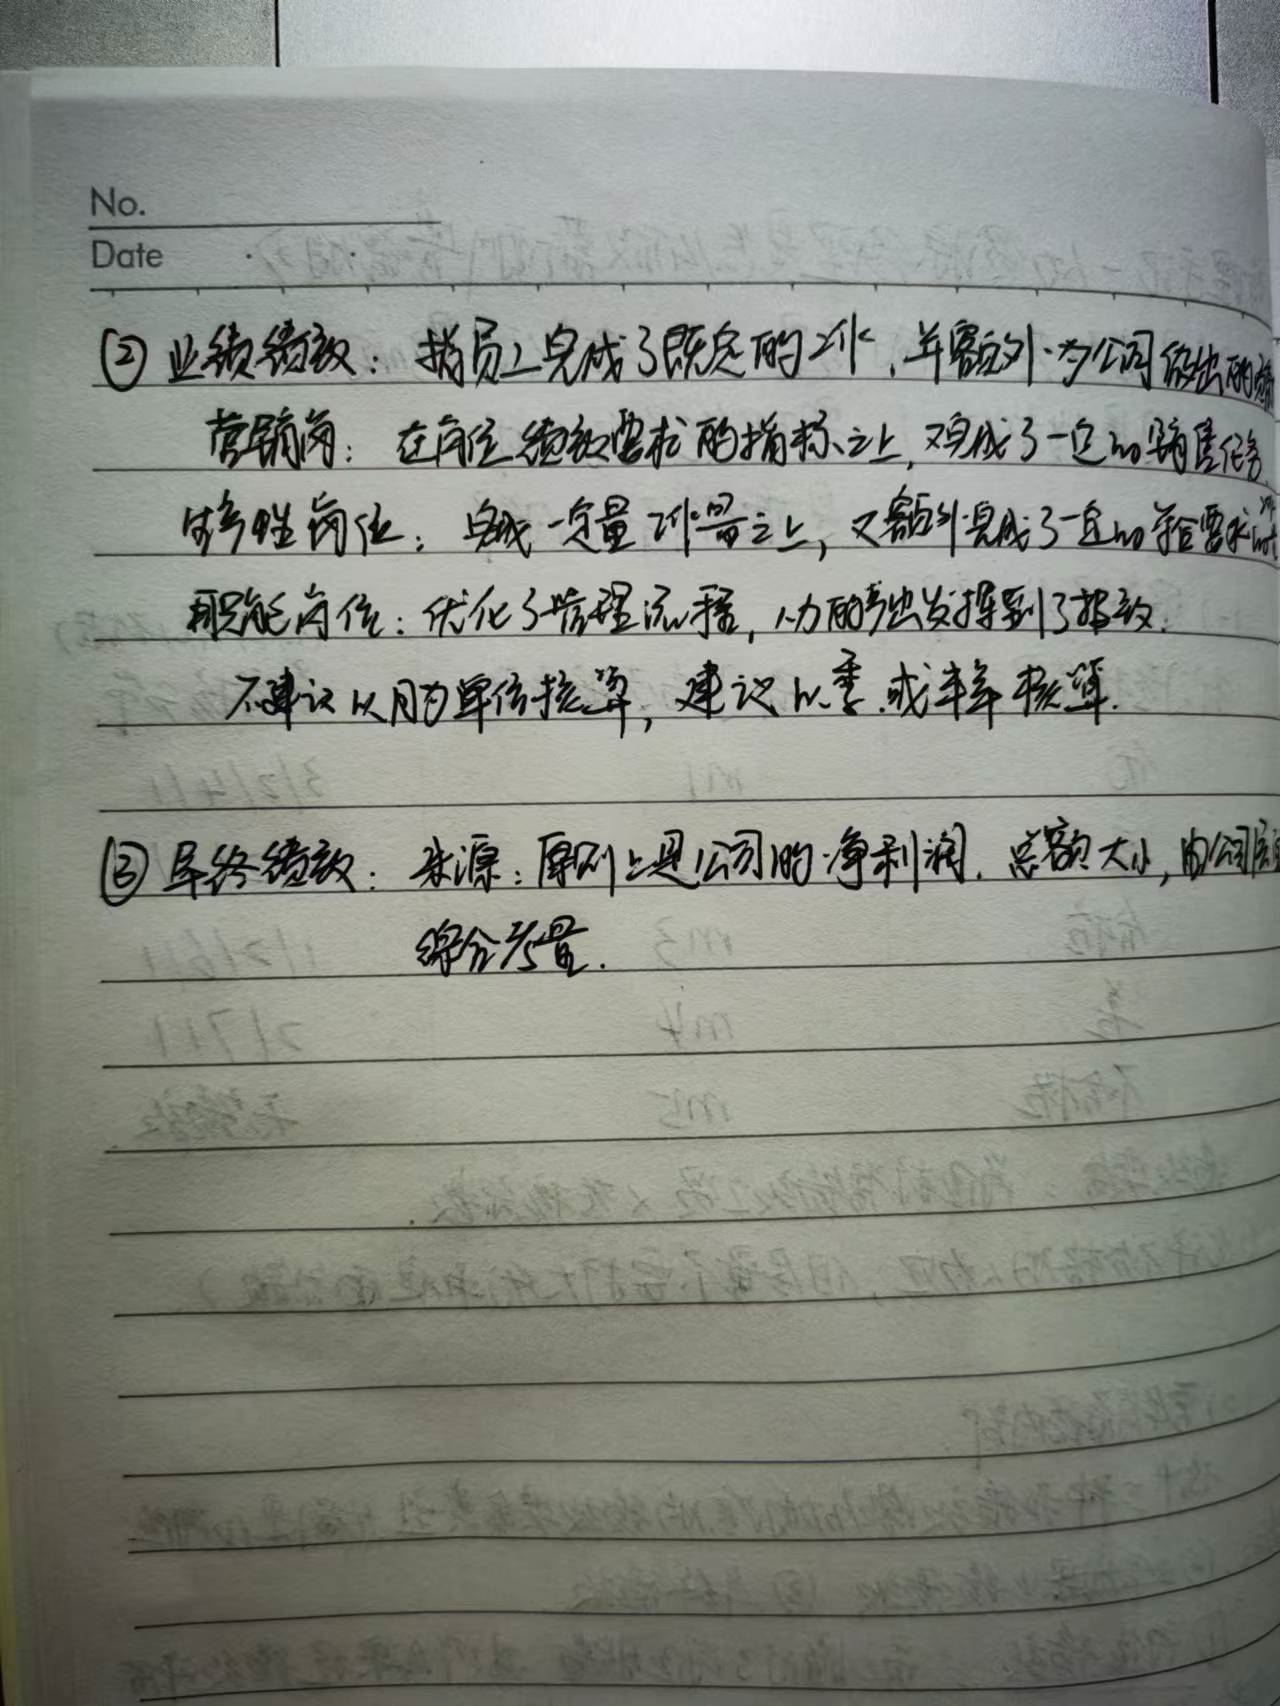 No.
Date
② 业绩绩效：指员工完成了既定的工作，并额外为公司做出的
营销岗：在岗位绩效要求的指标之上，又完成了一定的销售任务
生产性岗位：完成一定量工作量之上，又额外完成了一定的符合要求的
职能岗位：优化了管理流程，人力的产出发挥到了极致．
不建议以月为单位核算，建议以季．或半年核算．
③ 年终绩效：来源：原则上是公司的净利润．总额大小，由公司
综合考量．